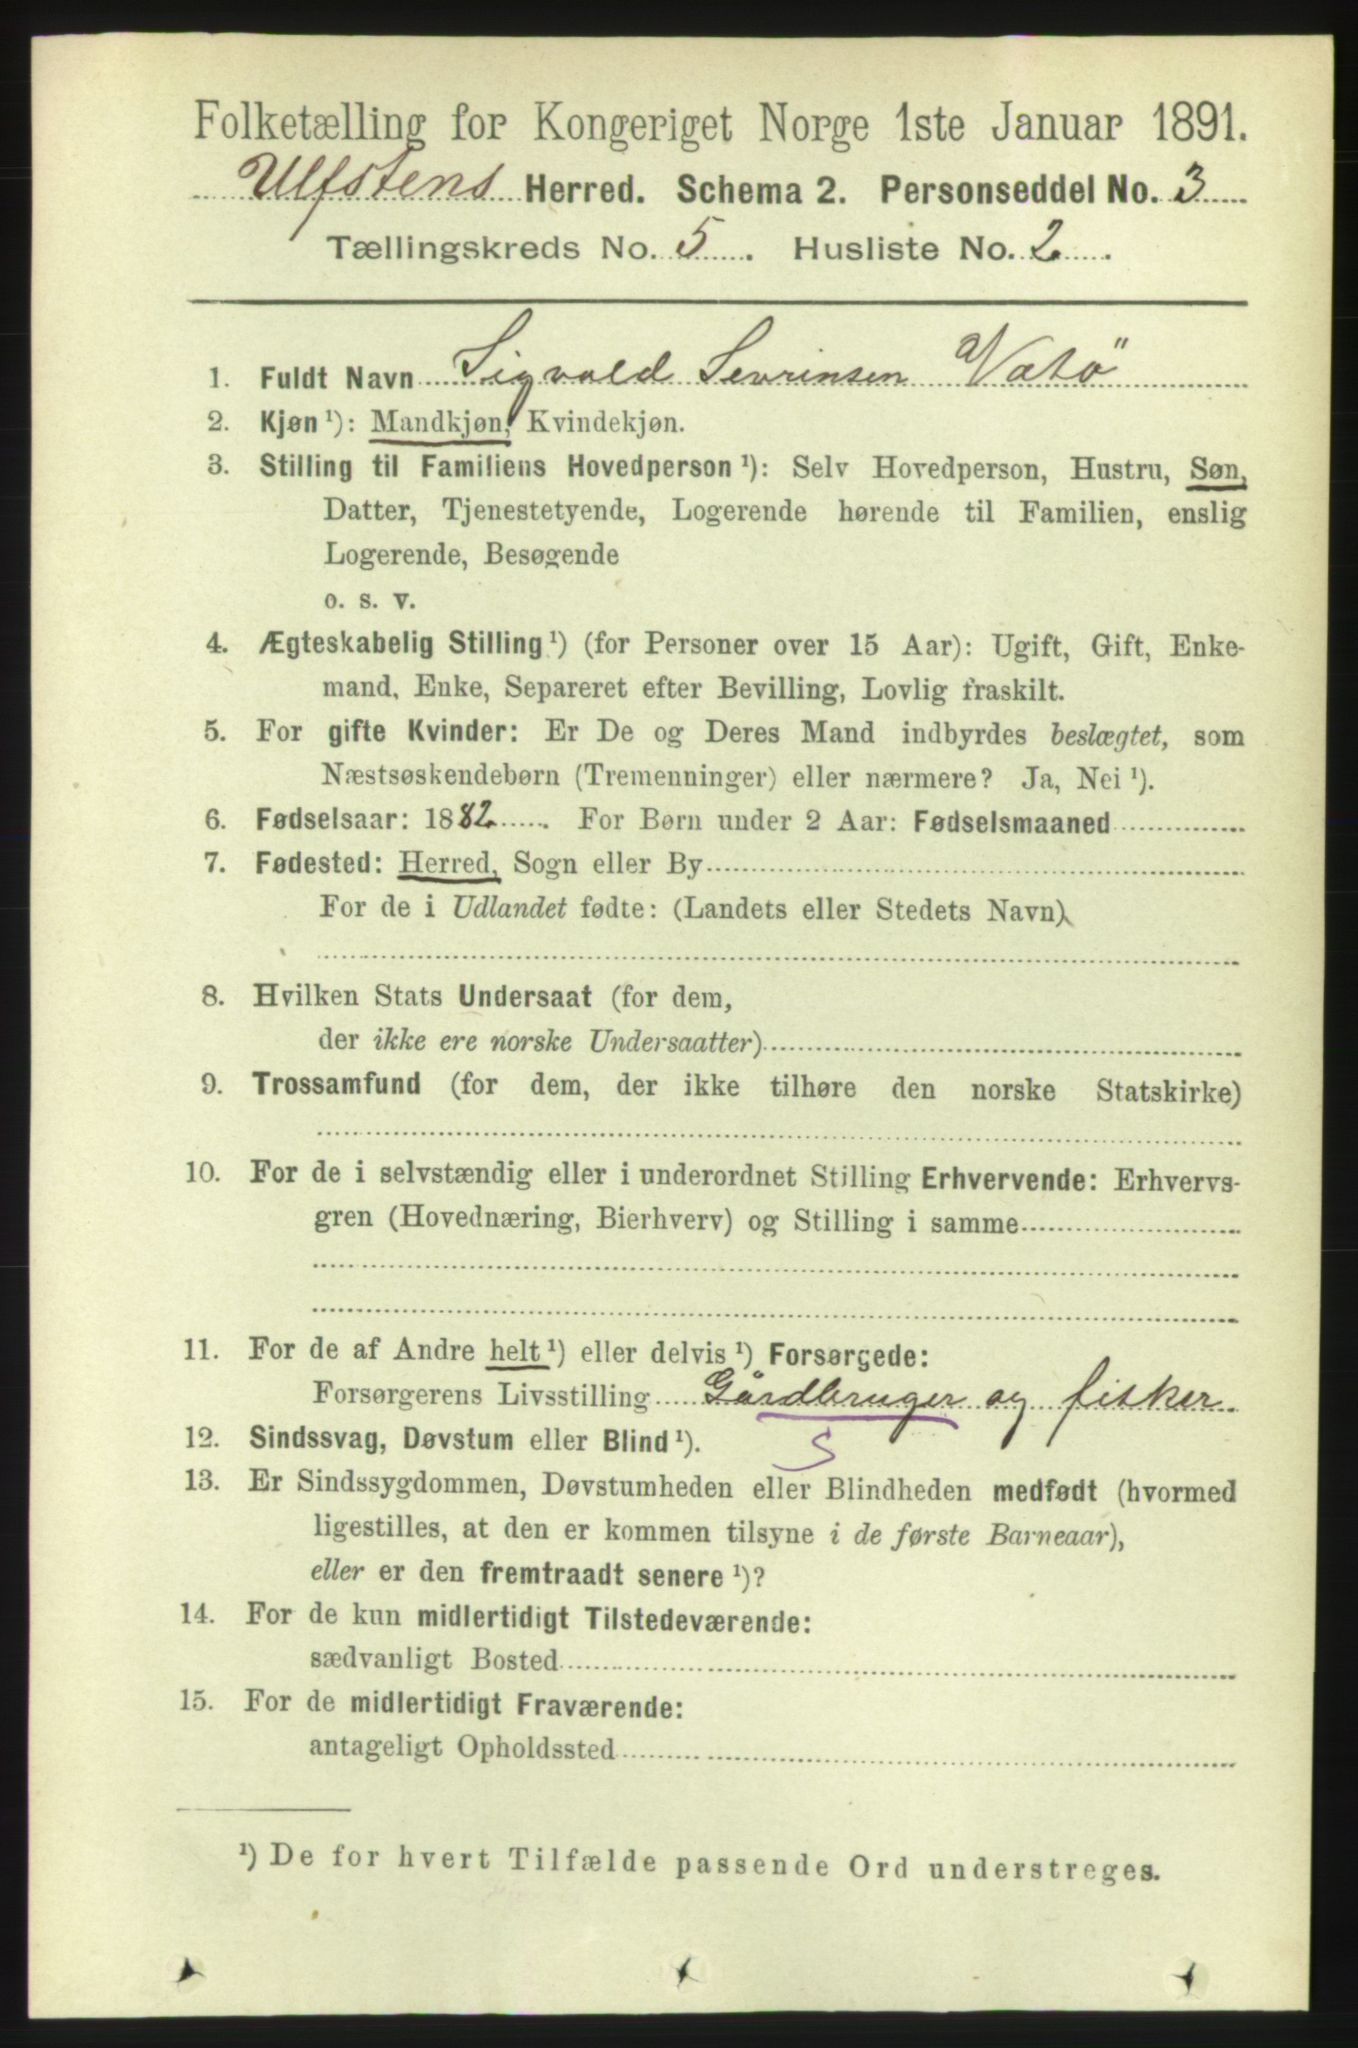 Folketælling for Kongeriget Norge 1ste Januar 1891.
Ulfstens Herred. Schema 2. Personseddel No. 3
Tællingskreds No. 5. Husliste No. 2.
1. Fuldt Navn Sigvald Sevrinsen Vatö
2. Kjøn ¹): Mandkjøn, Kvindekjøn.
3. Stilling til Familiens Hovedperson ¹): Selv Hovedperson, Hustru, Søn,
Datter, Tjenestetyende, Logerende hørende til Familien, enslig
Logerende, Besøgende
o. s. v.
4. Ægteskabelig Stilling ¹) (for Personer over 15 Aar): Ugift, Gift, Enke-
mand, Enke, Separeret efter Bevilling, Lovlig fraskilt.
5. For gifte Kvinder: Er De og Deres Mand indbyrdes beslægtet, som
Næstsøskendebørn (Tremenninger) eller nærmere? Ja, Nei ¹).
6. Fødselsaar: 1882. For Børn under 2 Aar: Fødselsmaaned
7. Fødested: Herred, Sogn eller By
For de i Udlandet fødte: (Landets eller Stedets Navn)
8. Hvilken Stats Undersaat (for dem,
der ikke ere norske Undersaatter)
9. Trossamfund (for dem, der ikke tilhøre den norske Statskirke)
10. For de i selvstændig eller i underordnet Stilling Erhvervende: Erhvervs-
gren (Hovednæring, Bierhverv) og Stilling i samme
11. For de af Andre helt ¹) eller delvis ¹) Forsørgede:
Forsørgerens Livsstilling Gårdbruger og fisker.
12. Sindssvag, Døvstum eller Blind ¹). S
13. Er Sindssygdommen, Døvstumheden eller Blindheden medfødt (hvormed
ligestilles, at den er kommen tilsyne i de første Barneaar),
eller er den fremtraadt senere ¹)?
14. For de kun midlertidigt Tilstedeværende:
sædvanligt Bosted
15. For de midlertidigt Fraværende:
antageligt Opholdssted
¹) De for hvert Tilfælde passende Ord understreges.